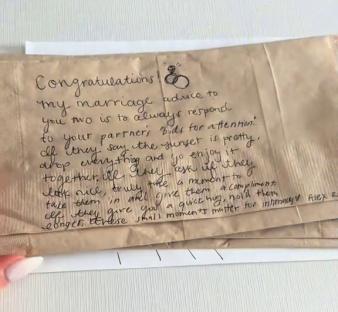 Congratulations!
my marriage advice to
you two is to always respond
to your partner's "bids for attention."
If they say the sunset is pretty,
drop everything and go enjoy it
together. If they ask if they
look nice, truly take a moment to
take them in and give them a compliment
If they give you a quick hug, hold them
longer. These small moments matter for intimacy Alex